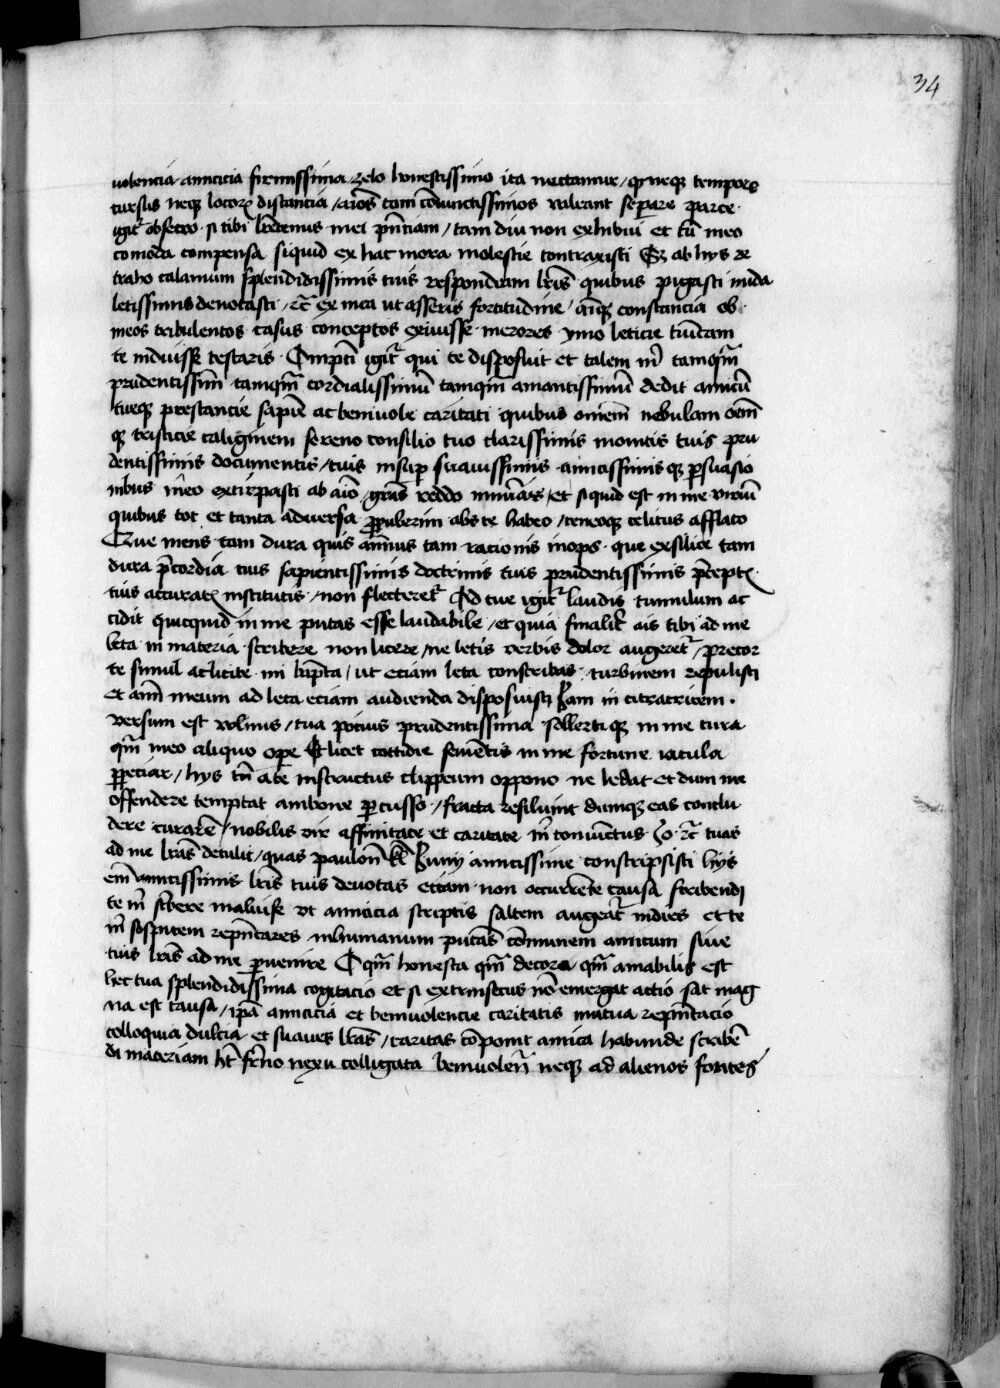 34
uolencia amicicia firmissima zelo honestissimo ita nectamur / qd neqz tempors
cursus neqz locorꝫ distancia / aīos tam cōiunctissimos valeant sepᵃre parce ·
igitᵉ obsecro · si tibi hᵃctenus mei pn̄tiam / tam diu non exhibui et tuū meo
comoda compensa siquid ex hac mora molestie contraxisti Sꝫ ab hys de
traho calamum splendidissimis tuis respondeam lr̄is quibus
letissimis denotasti / ex mea ut asseris fortitudine / aīqz constancia ob
meos turbulentos casus conceptos exiuisse merores ymo leticie
te induisse testaris · igitᵉ qui te disposuit et talem m̄ tamqᵃm
prudentissim̄ tamqᵃm cordialissimū tamqᵃm amantissimū dedit amicū
tueqz prestancie sapien̄ ac beniuole caritati quibus omnem nebulam oem̄
qz tristicie caliginem sereno consilio tuo clarissimis monitis tuis pru
dentissimis documentis / tuis insup suauissimis amicissimis qz psuasio
nibus meo extirpasti ab aīo / grās reddo / et siquid est in me viriū
quibus tot et tanta aduersa ppulerim abs te habeo / teneoqz celitus afflato
Que mens tam dura quis animus tam racionis inops · que exsilice tam
dura p̄cordia tuis sapientissimis doctrinis tuis prudentissimis p̄ceptꝭ
tuis accuratꝭ institutis / non flecteretᵉ Ad tue igitᵉ laudis tumulum ac
cidit quicquid in me putas esse laudabile / et quia finalitᵉ ais tibi ad me
leta in materia scribere non licere / ne letis verbis dolor augeretᵉ / precor
te simul ac licite mi / ut eciam leta conscribas turbinem repulisti
et aīm meum ad leta eciam audienda disposuisti Iam in citratricem ·
versum est vulnus / tua pocius prudentissima sollerti qz in me cura
qᵃm meo aliquo ope Et licet cottidie seuientis in me fortune iacula
ppeciar / hys tn̄ a te instructus clippeum oppono ne ledat et dum me
offendere temptat umbone pcusso / fracta resiliunt dumqz eas conclu
dere curarem / nobilis vir affinitate et caritate m̄ coniunctus Io · tuas
ad me lr̄as detulit / quas kl̄ Iunij amicissime conscripsisti hys
em̄ amicissimis lr̄is tuis deuotas eciam non occurrēte causa scribendi
te m̄ scbere maluisse vt amicicia scriptis saltem augeatᵉ indies et te
m̄ sospitem repn̄tares inhumanum putās cōmunem amicum siue
tuis lr̄is ad me puenire O qᵃm honesta qᵃm decora qᵃm amabilis est
hec tua splendidissima cogitacio et si extrinsecus nō emergat actio sat mag
na est causa / ipā amicicia et beniuolencie caritatis mutua repn̄tacio
colloquia dulcia et suaues lr̄as / caritas cōponit amica habunde scribē
di materiam hꝫ fr̄no nexu colligata beniuolen̄ neqz ad alienos fontes